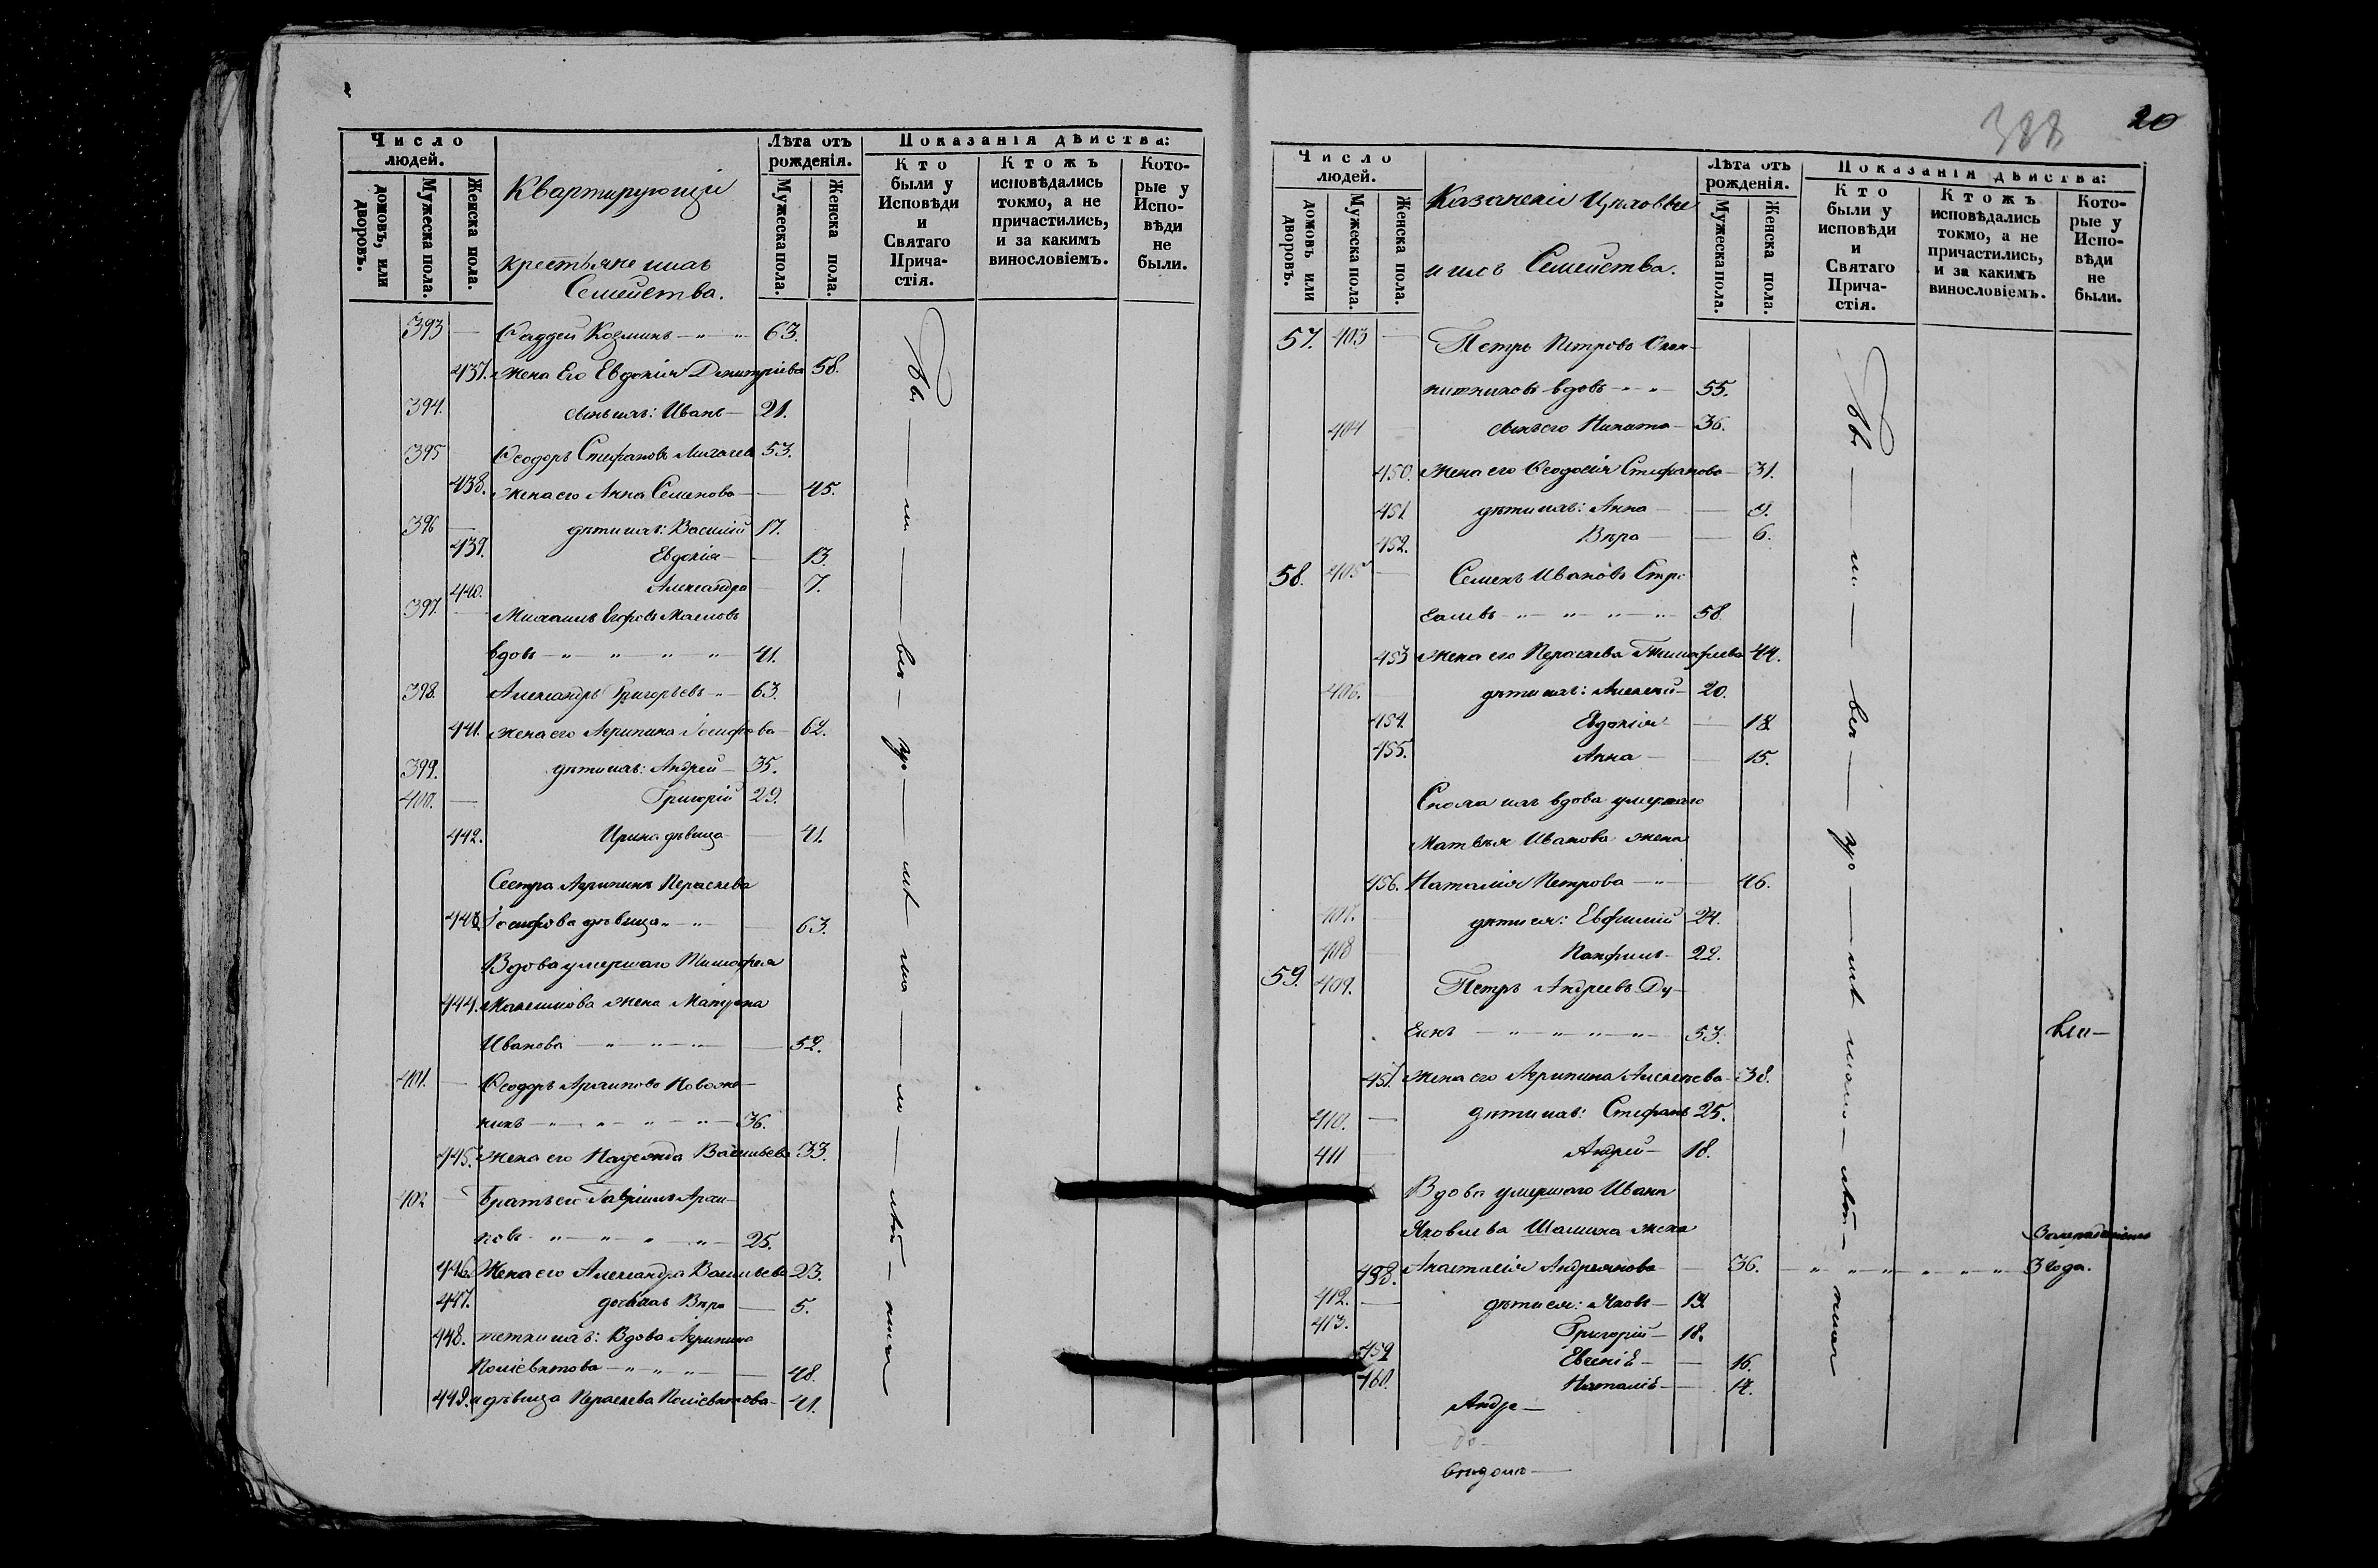 Число людей.
домовъ, или дворовъ.
Мужеска пола.
Женска пола.
Квартирующіи
крестьяне и ихъ
Семейства.
Лѣта отъ рожденія.
Мужеска пола.
Женска пола.
Показанія дѣйства:
Кто были у Исповѣди и Святаго Прича-стія.
Ктожъ исповѣдались токмо, а не причастились, и за какимъ винословіемъ.
Кото-рые у Испо-вѣди не были.
393 — Фаддей Козминъ — 63.
437. Жена Его Евдокія Димитріева 58.
394. сынъ ихъ: Иванъ — 21.
395 Ѳеодоръ Стефановъ 53.
438. жена его Анна Семенова — 45.
396 — дѣти ихъ: Василій 17.
439. Евдокія — 13.
440. Александра — 7.
397. — Михаилъ Егоровъ Масловъ
вдовъ — 41.
398. Александръ Григорьевъ — 63.
441. жена его Агрипина Іосифова — 62.
399. дѣти ихъ: Андрей — 35.
400. — Григорій 29.
442. Ирина дѣвица — 41.
Сестра Агрипины Параскева
443. Іосифова дѣвица — 63.
Вдова умершаго Тимофея
444. жена Матрона
Иванова — 52.
401. — Ѳеодоръ Архиповъ
36.
445. жена его Надежда Васильева 33.
402 — Братъ его Гавріилъ Архи-
повъ — 25.
446. Жена его Александра Васильева 23.
447. дочь ихъ Вѣра — 5.
448. тетки ихъ: Вдова Агрипина
Поліевктова — 48.
449. и дѣвица Параскева Поліевктова — 41.
388
20
Число людей.
домовъ или дворовъ.
Мужеска пола.
Женска пола.
Казанскіи Цеховые
и ихъ Семейства.
Лѣта отъ рожденія.
Мужеска пола.
Женска пола.
Показанія дѣйства:
Кто были у исповѣди и Святаго Прича-стія.
Ктожъ исповѣдались токмо, а не причастились, и за какимъ винословіемъ.
Кото-рые у Испо-вѣди не были.
57. 403 — Петръ Петровъ
вдовъ — 55.
404 — сынъ его Никита — 36.
450. Жена его Ѳеодосія Стефанова — 31.
451 дѣти ихъ: Анна — 9.
452. Вѣра — 6.
58. 405 — Семенъ Ивановъ
58.
453 Жена его Параскева Тимофеева 44.
406. — дѣти ихъ: Алексей — 20.
454. Евдокія — 18.
455. Анна — 15.
Сноха ихъ вдова умершаго
Матвѣя Иванова жена
456. Наталія Петрова — 46.
407. — дѣти ея: Евфимій 24.
408 — Панфилъ — 22.
59. 409. Петръ Андреевъ
53.
457. Жена его Агрипина Алексеева — 38.
410. — дѣти ихъ: Стефанъ 25.
411 — Андрей — 18.
Вдова умершаго Ивана
Яковлева жена
458. Анастасія Андреянова — 36. — 3 года.
412. — дѣти ея: Яковъ —
413. Григорій — 18.
459 Евгенія — 16.
460. Наталія —
Андре —